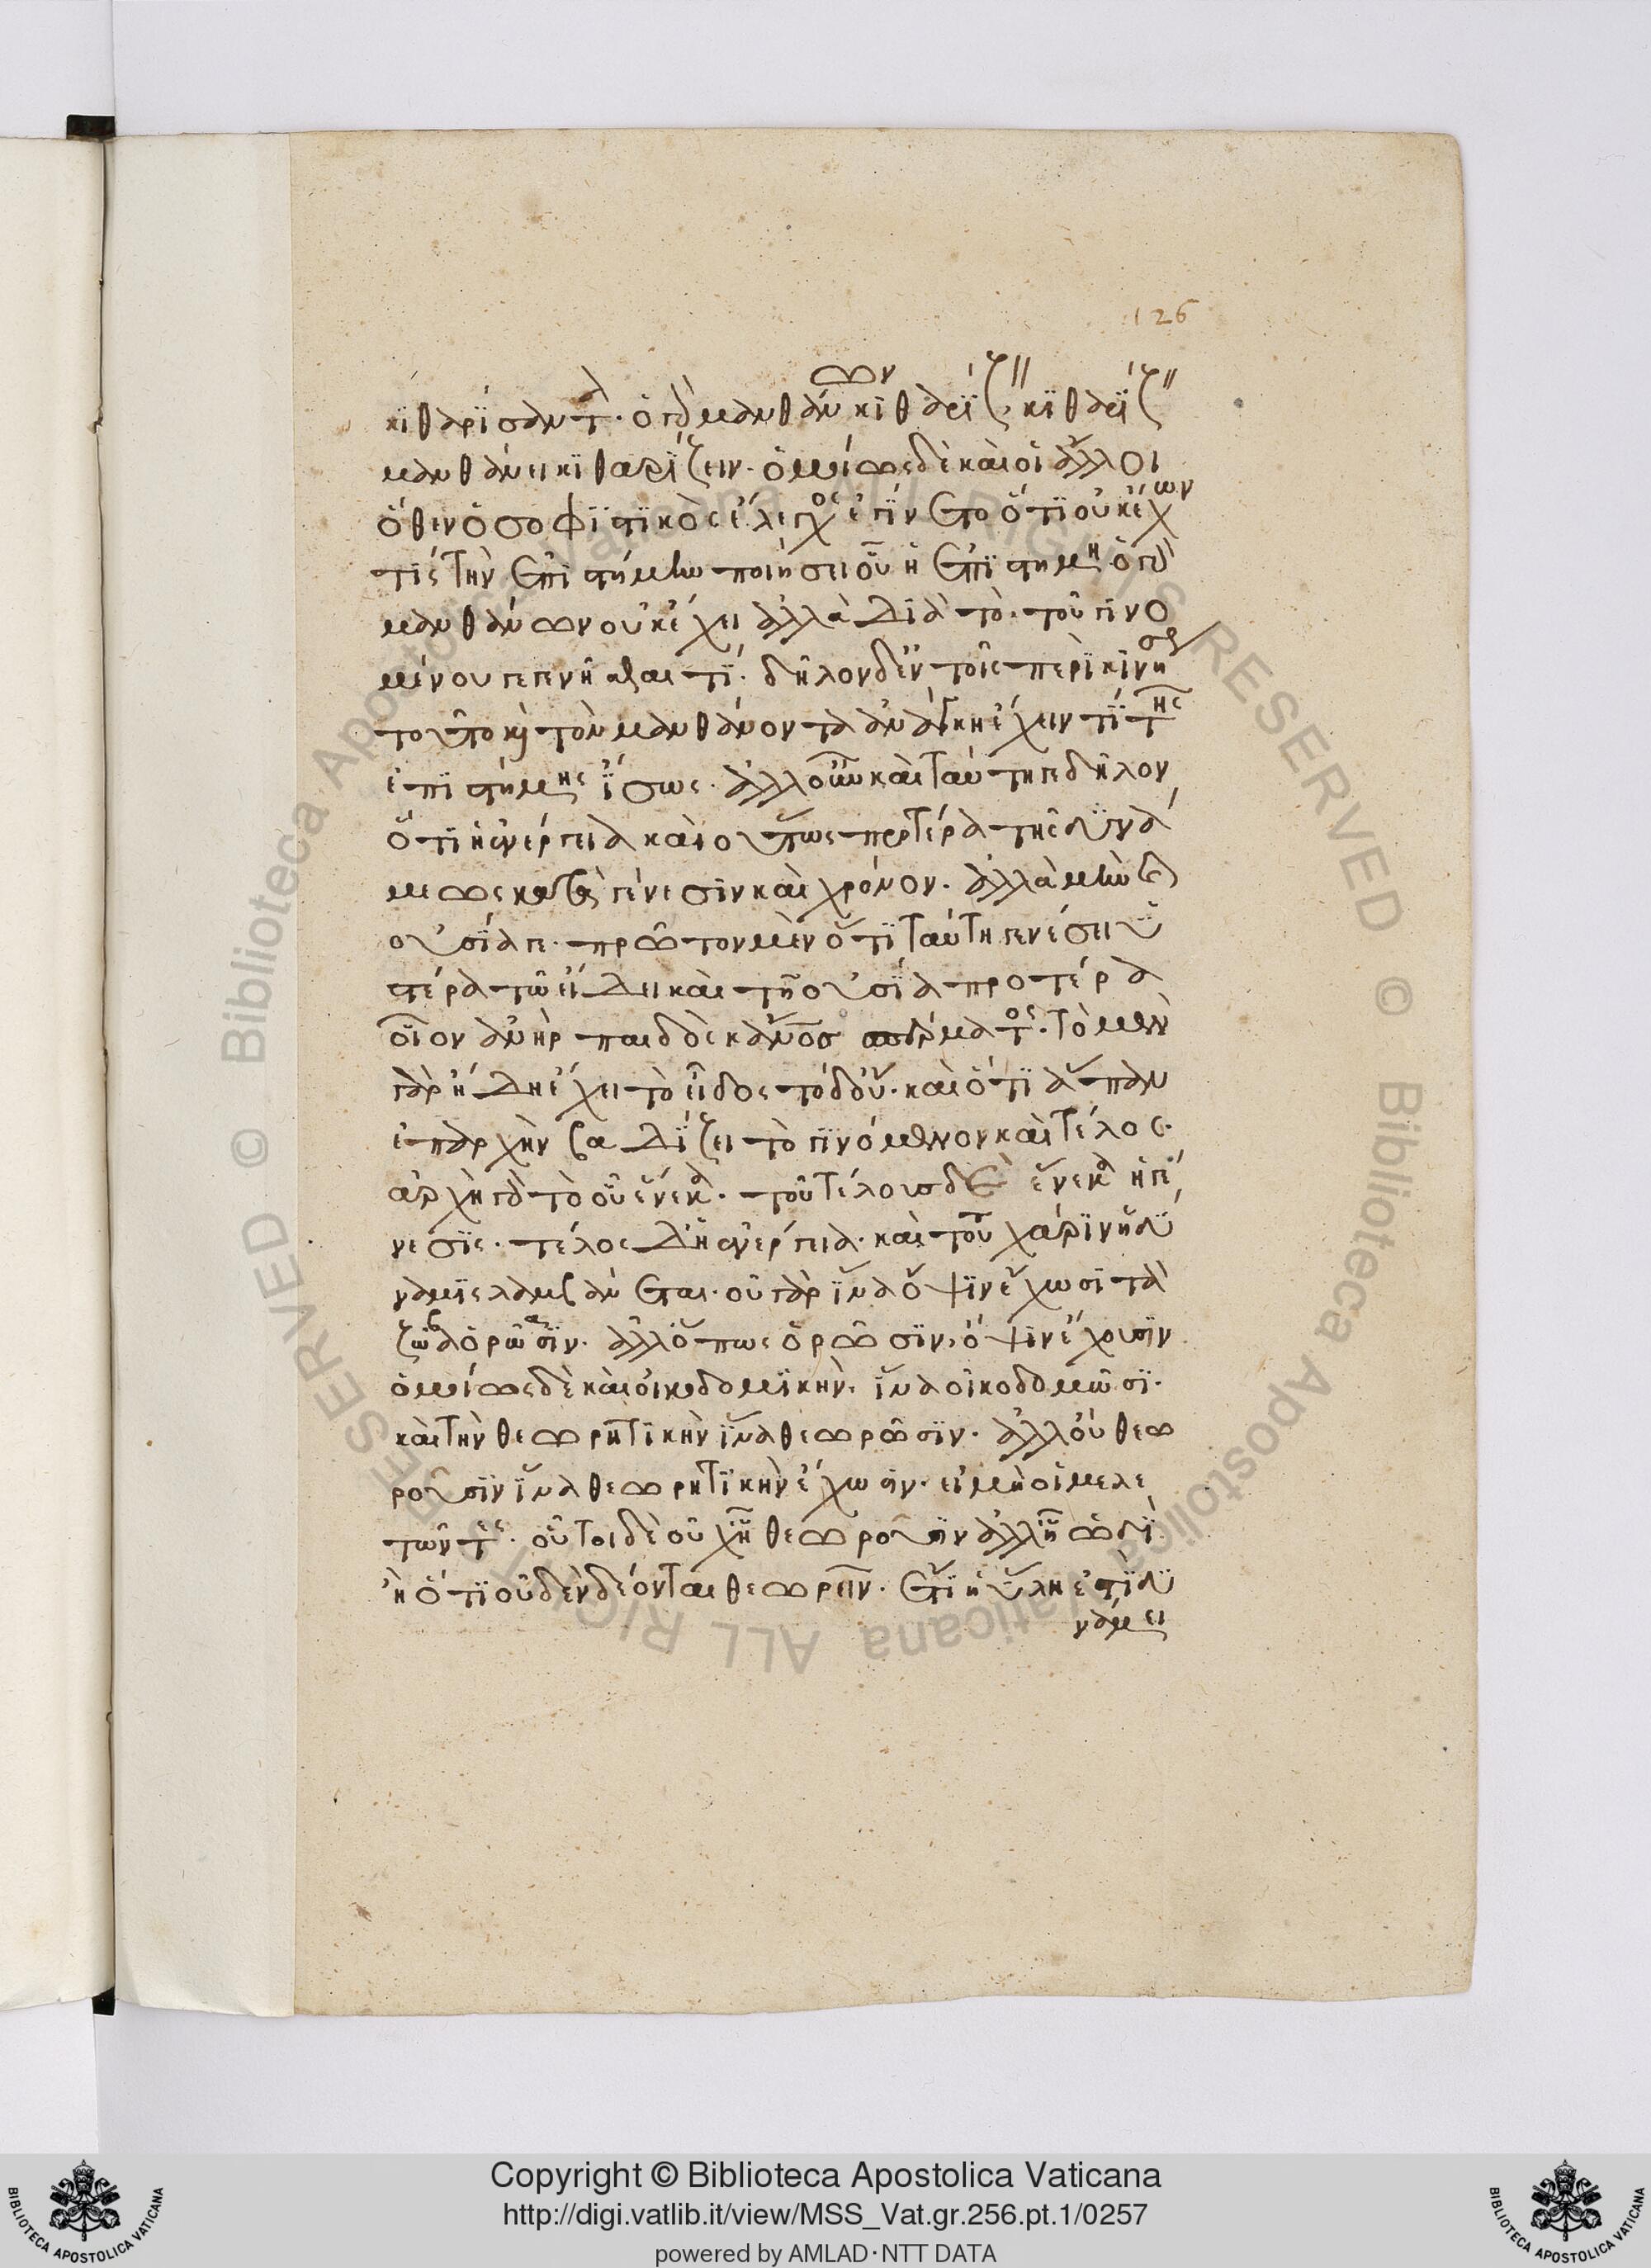 κιθαρίσαντα· ὁ γὰρ μανθάνων κιθαρίζειν, κιθαρίζων
μανθάνει κιθαρίζειν· ὁμοίως δὲ καὶ οἱ ἄλλοι
ὅθεν ὁ σοφιστικὸς ἔλεγχος ἐγίνετο ὅτι οὐκ ἔχων
τὶς τὴν ἐπιστήμην ποιήσει οὗ ἡ ἐπιστήμη· ὁ γὰρ
μανθάνων οὐκ ἔχει ἀλλὰ διὰ τὸ· τοῦ γινο
μένου γεγενῆσθαι τί· δῆλον δ' ἐν τοῖς περὶ κινήσεως
τοῦτο καὶ τὸν μανθάνοντα ἀνάγκη ἔχειν τί τῆς
ἐπιστήμης ἴσως· ἀλλ' οὖν καὶ ταύτη γε δῆλον
ὅτι ἡ ἐνέργεια καὶ οὕτως προτέρα τῆς δυνά
μεως κατὰ γένεσιν καὶ χρόνον· ἀλλὰ μὴν καὶ
οὐσία γε· πρῶτον μὲν ὅτι τὰ τῆ γενέσει ὑ
στέρα τῶ εἴδει καὶ τῆ οὐσία προτέρα
οἷον ἀνὴρ παιδὸς καὶ ἄνθρωπος σπέρματος· τὸ μὲν
γὰρ ἤδη ἔχει τὸ εἶδος τὸ δ' οὔ· καὶ ὅτι ἅπαν
ἐπ' ἀρχὴν βαδίζει τὸ γινόμενον καὶ τέλος·
ἀρχὴ γὰρ τὸ οὗ ἕνεκα· τοῦ τέλους δὲ ἕνεκα ἡ γέ
νεσις· τέλος δ' ἡ ἐνέργεια· καὶ τούτου χάριν ἡ δύ
ναμις λαμβάνεται· οὐ γὰρ ἵνα ὄψιν ἔχωσι τὰ
ζῶα ὁρῶσιν· ἀλλ' ὅπως ὁρῶσιν, ὄψιν ἔχουσιν
ὁμοίως δὲ καὶ οἰκοδομικήν· ἵνα οἰκοδομῶσι·
καὶ τὴν θεωρητικὴν ἵνα θεωρῶσιν· ἀλλ' οὐ θεω
ροῦσιν ἵνα θεωρητικὴν ἔχωσιν· εἰ μὴ οἱ μελε
τῶντες· οὗτοι δὲ οὐχὶ θεωροῦσιν ἀλλ' ἢ ὡδὶ
ἢ ὅτι οὐδὲν δέονται θεωρεῖν· ἔτι ἡ ὕλη ἐστὶ δυ
νάμει